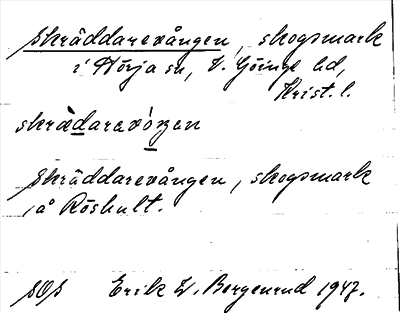 Skräddarevången, skogsmark
i Nörja sn, V. Göinge hd,
Krist. l.
skrädarevóŋen
Skräddarevången, skogsmark
å Röshult.
SOS Erik W. Bergenrud 1947.